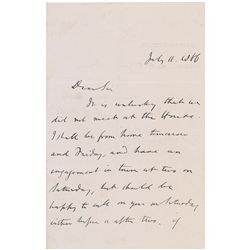 July 11. 1866
Dear Sir
It is unlucky that we
did not meet at the House.
I shall be from home tomorrow
and Friday, and have an
engagement in town at two on
Saturday, but should be
happy to call on you on Saturday
either before or after two. If